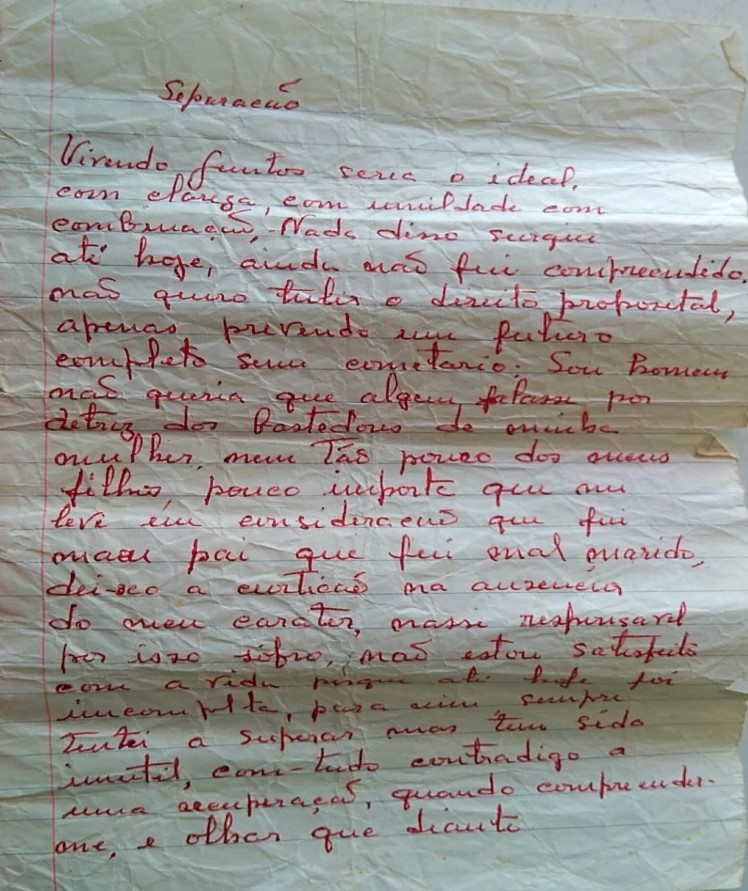 Separacão
Vivendo juntos seria o ideal,
com clareza, com umildade com
combinação, Nada disso surgiu
até hoje, ainda não fui compreendido.
não quero tirar o direito proposital,
apenas prevendo um futuro
completo sem cometario: Sou homem
não queria que algem falasse por
detraz dos bastedores de minha
mulher, nem Tão pouco dos meus
filhos, pouco importe que me
leve em consideracão que fui
mau pai que fui mal marido,
deixo a na auzencia
do meu carater, nasci responsavel
por isso sofro, não estou satisfeito
com a vida porque até hoje foi
incomplta, para mim, sempre
Tentei a superar mas tem sido
inutil, com-tudo contradigo a
uma recuperação, quando compreender-
me, e olhar que diante